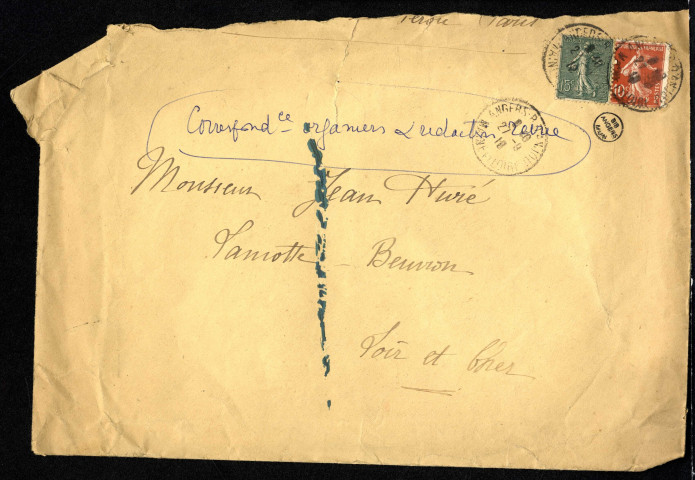 Paris
15c
ANGERS
Correspond ce organiers & rédaction Revue
Monsieur Jean Hivié
Lamotte - Beuvron
Loir et Cher